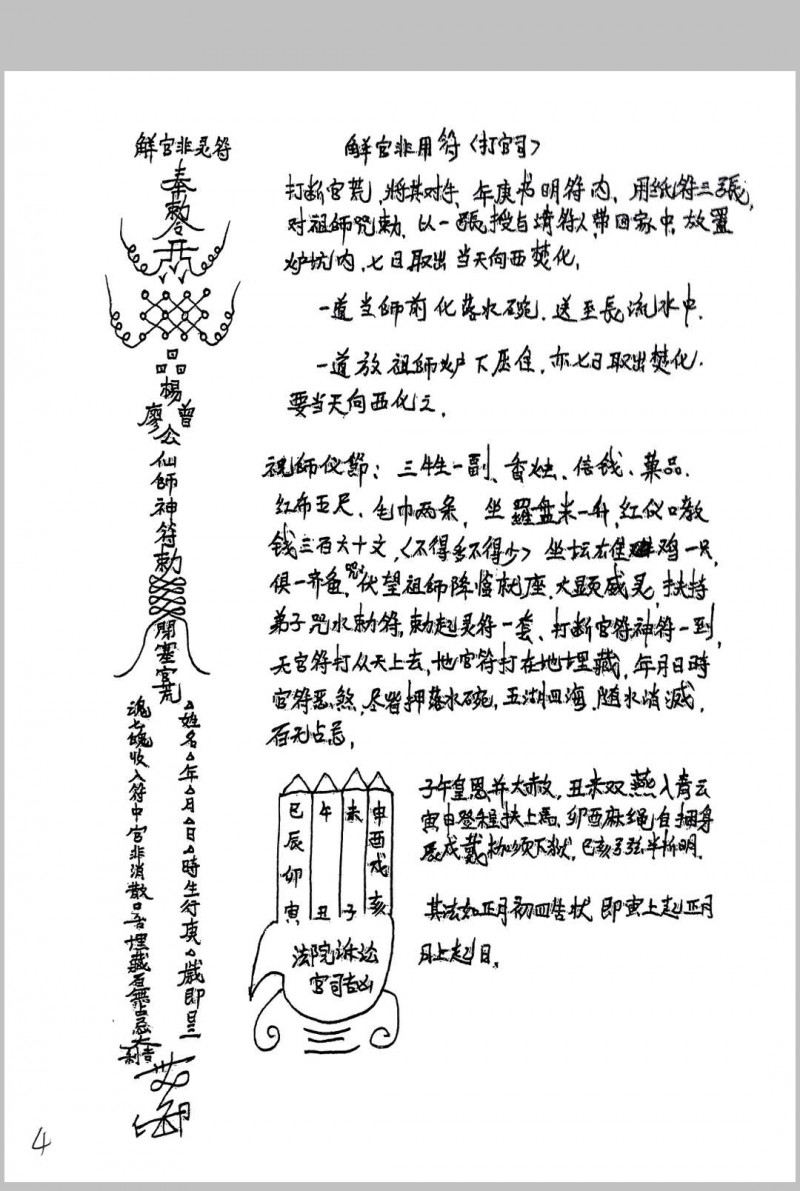 觧官非灵符
奉
勅令
开
品
楊
廖 曾
公
仙師神符勅
閉塞官荒
△姓名△年△月△日△時生行庚△歲即日三
魂七魄收入符中官非消散口舌埋藏百無占忌大吉
利
觧官非用符〈打官司〉
打断官荒，將其对午、年庚书明符内，用纸符三張，
对祖師咒勅，以一張授与請符人，带回家中，放置
炉坑内，七日取出当天向西焚化，
一道当師前化落水碗，送至長流水中．
一道放祖師炉下压住，亦七日取出焚化．
要当天向西化之．
祝師仪節：三牲一副、香烛、信钱、菓品．
红布五尺、毛巾两条，坐羅盘米一升，红仪口教
钱三百六十文，〈不得多不得少〉坐坛右佳鸡一只，
俱一齐备，咒：伏望祖師降临就座，大顕威灵，扶持
弟子咒水勅符，勅起灵符一套、打断官符神符一到，
天官符打从天上去，地官符打在地埋藏，年月日時
官符恶煞，尽皆押落水碗，五湖四海，随水消滅，
百无占忌，
子午皇恩并大赦，丑未双燕入青云
寅申登程扶上馬，卯酉麻绳自捆身
辰戌戴枷须下狱，巳亥弓弦半折明．
其法如正月初四告状，即寅上起正月
月上起日，
巳 午 未 申
辰 酉
卯 戌
寅 丑 子 亥
法院诉讼
官司吉凶
4